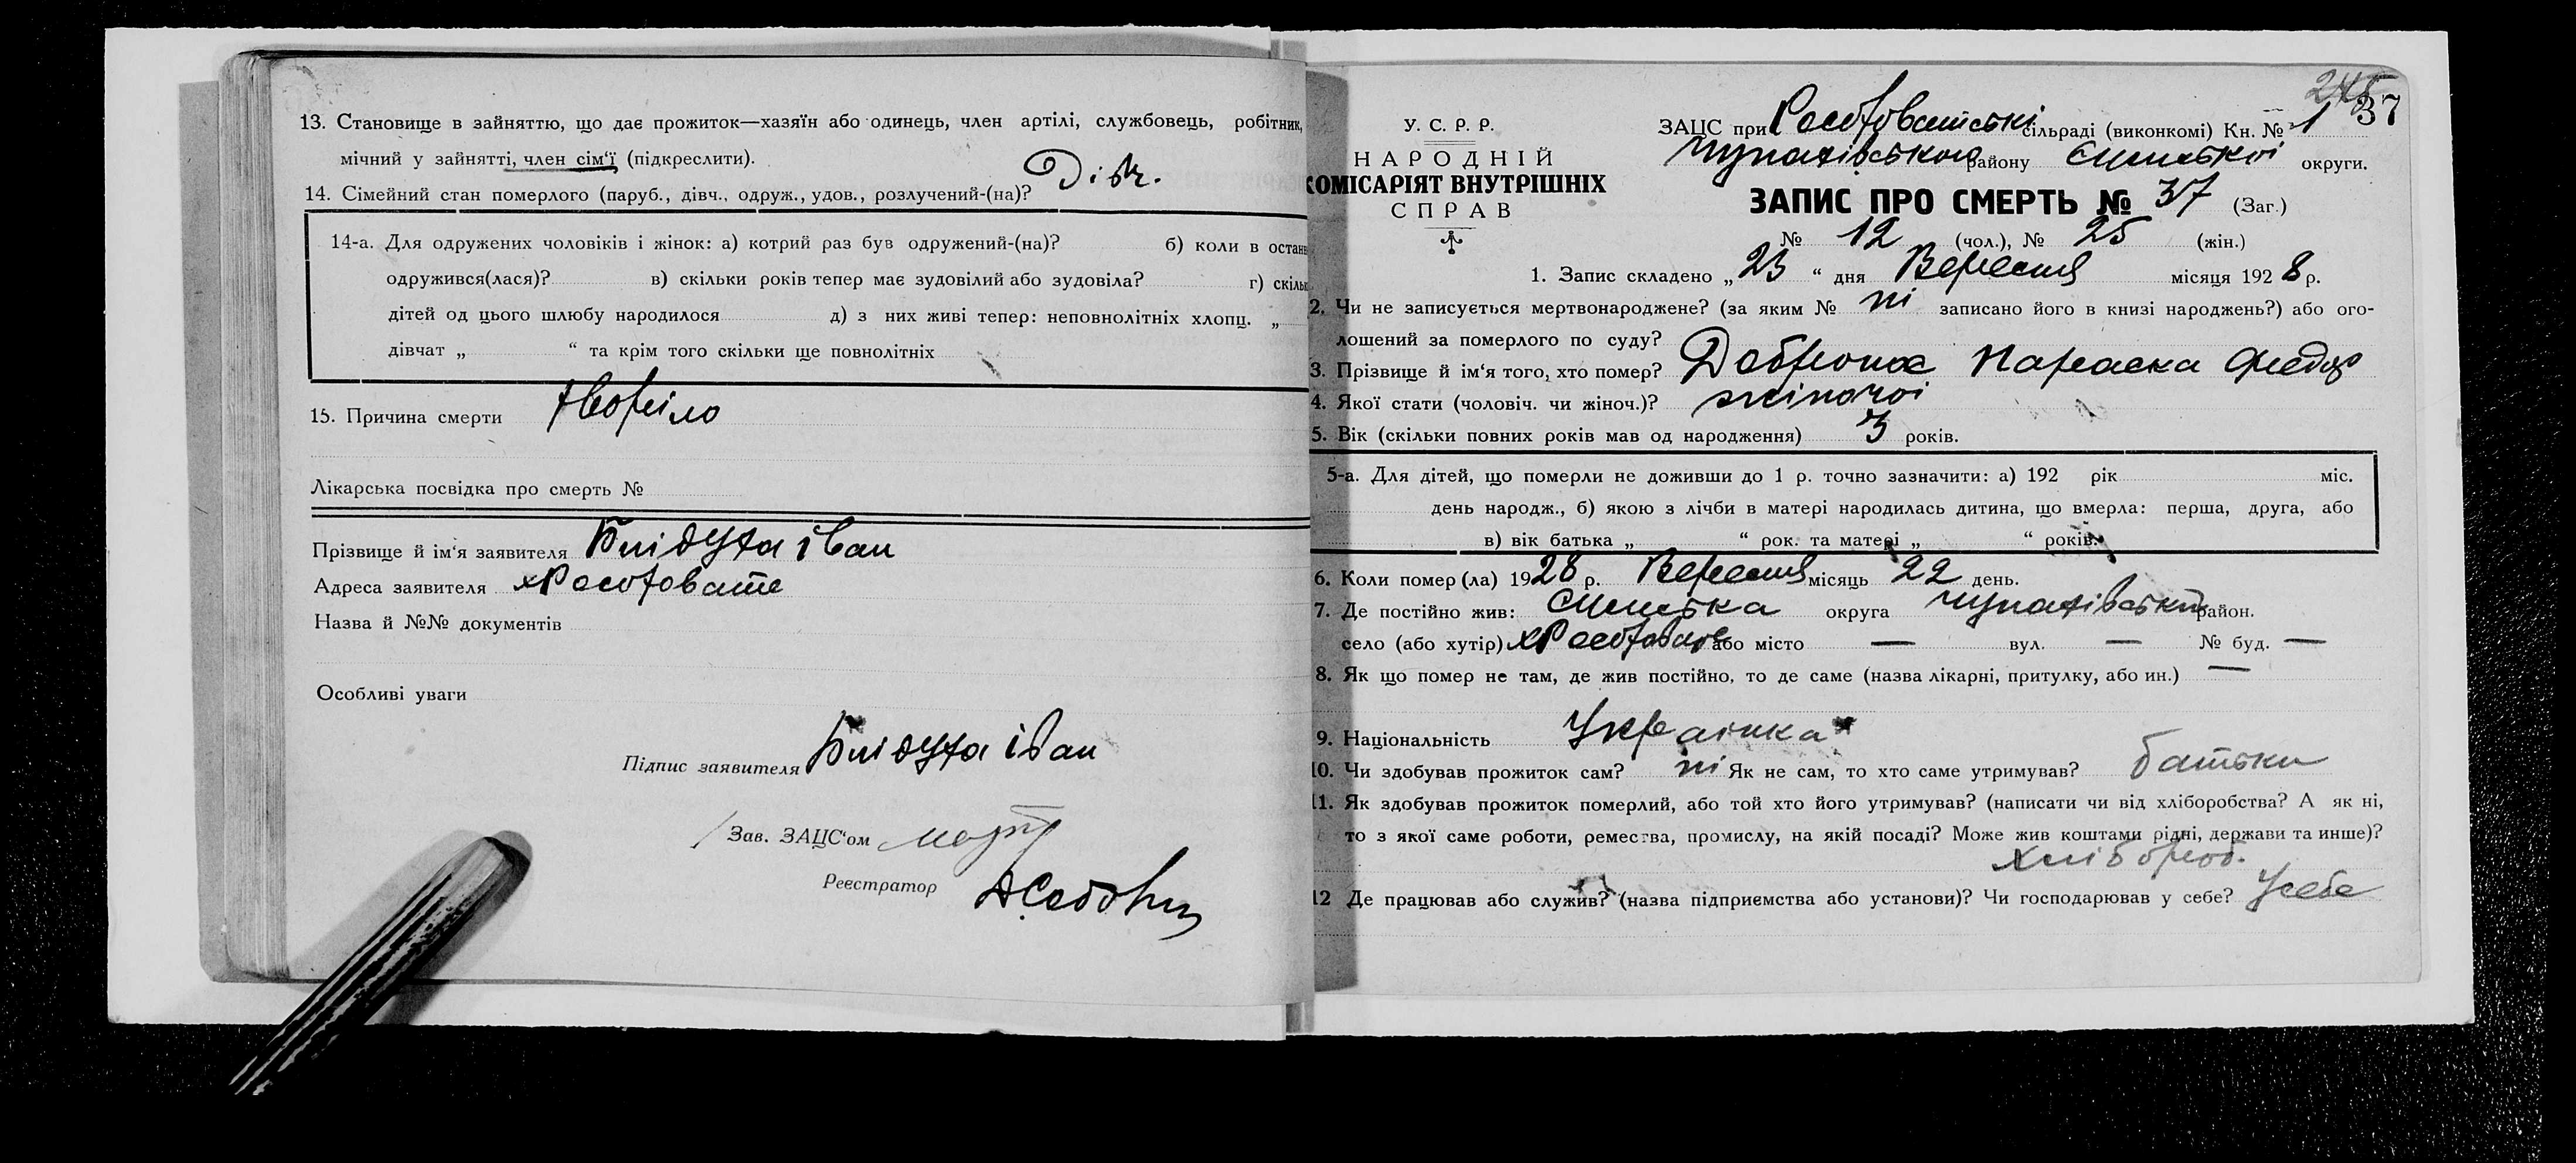 13. Становище в зайняттю, що дає прожиток—хазяїн або одинець, член артілі, службовець, робітник,
мічний у зайнятті, член сім'ї (підкреслити).
14. Сімейний стан померлого (паруб., дівч., одруж., удов., розлучений-(на)? Дівч.
14-а. Для одружених чоловіків і жінок: а) котрий раз був одружений-(на)? б) коли в останн
одружився(лася)? в) скільки років тепер має зудовілий або зудовіла? г) скіль
дітей од цього шлюбу народилося д) з них живі тепер: неповнолітніх хлопц. „
дівчат „ “ та крім того скільки ще повнолітніх
15. Причина смерти Хворіло
Лікарська посвідка про смерть №
Прізвище й ім'я заявителя іван
Адреса заявителя
Назва й №№ документів
Особливі уваги
Підпис заявителя іван
Зав. ЗАЦС'ом
Реєстратор
245
37
У. С. Р. Р.
НАРОДНІЙ
КОМІСАРІЯТ ВНУТРІШНІХ
СПРАВ
ЗАЦС при сільраді (виконкомі) Кн. № 1
району округи.
ЗАПИС ПРО СМЕРТЬ № 37 (Заг.)
№ 12 (чол.), № 25 (жін.)
1. Запис складено „23 “ дня Вересня місяця 1928 р.
2. Чи не записується мертвонароджене? (за яким № ні записано його в книзі народжень?) або ого-
лошений за померлого по суду?
3. Прізвище й ім'я того, хто помер? Параска
4. Якої стати (чоловіч. чи жіноч.)? жіночої
5. Вік (скільки повних років мав од народження) 3 років.
5-а. Для дітей, що померли не доживши до 1 р. точно зазначити: а) 192 рік міс.
день народж., б) якою з лічби в матері народилась дитина, що вмерла: перша, друга, або
в) вік батька „ “ рок. та матері „ “ років.
6. Коли помер(ла) 1928 р. Вересня місяць 22 день.
7. Де постійно жив: округа район.
село (або хутір) або місто — вул. — № буд. —
8. Як що помер не там, де жив постійно, то де саме (назва лікарні, притулку, або ин.) —
9. Національність Українка
10. Чи здобував прожиток сам? ні Як не сам, то хто саме утримував? батьки
11. Як здобував прожиток померлий, або той хто його утримував? (написати чи від хліборобства? А як ні,
то з якої саме роботи, ремества, промислу, на якій посаді? Може жив коштами рідні, держави та инше)?
хлібороб.
12 Де працював або служив? (назва підприємства або установи)? Чи господарював у себе? У себе